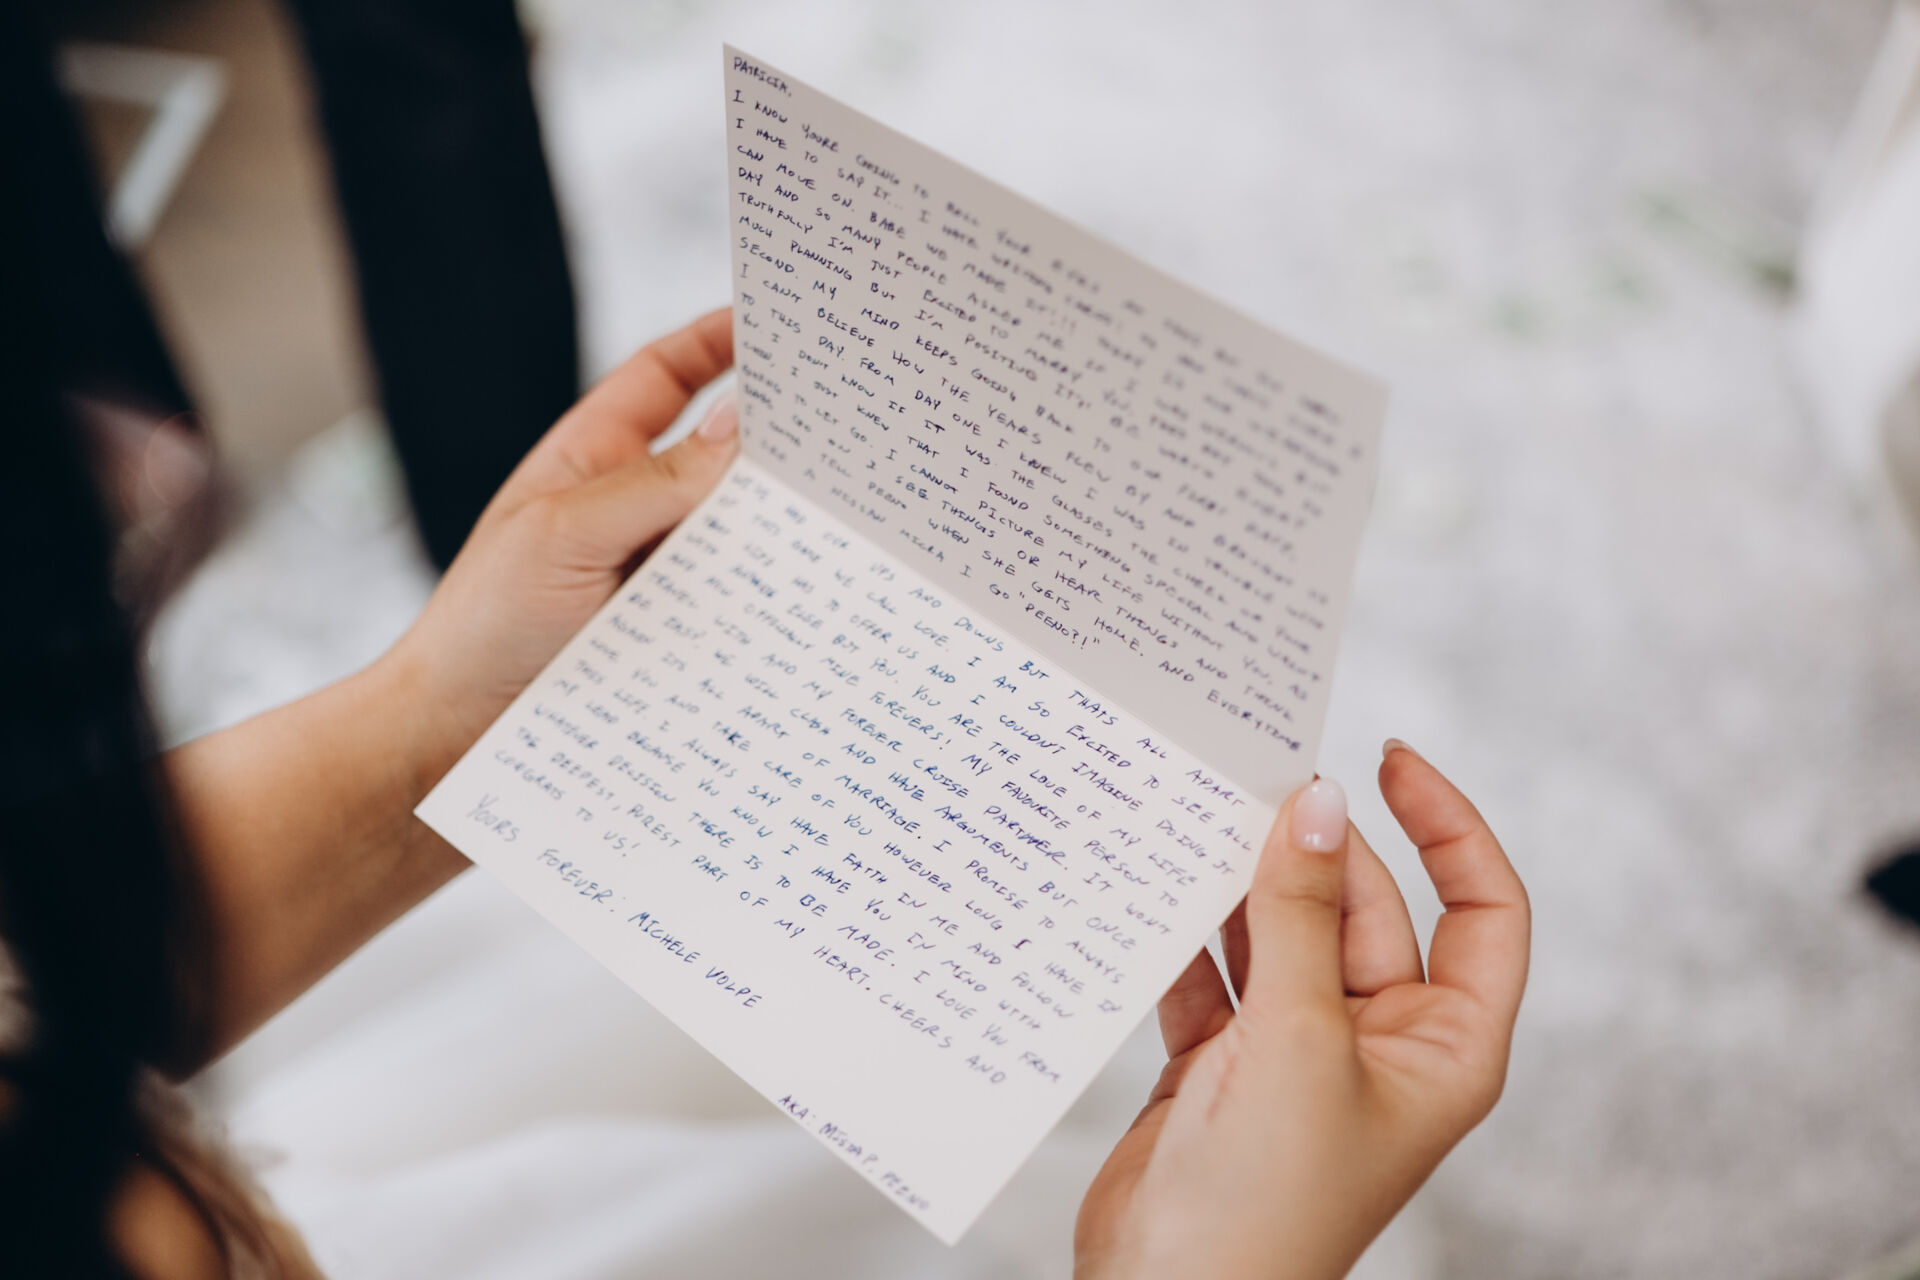 PATRICIA,
I KNOW YOURE GOING TO ROLL YOUR EYES
I HAVE TO SAY IT... I HATE WRITING CARDS!
CAN MOVE ON. BABE WE MADE IT!!! TODAY IS OUR
DAY AND SO MANY PEOPLE ASKED ME IF I WAS NERVOUS BUT
TRUTHFULLY I'M JUST EXCITED TO MARRY YOU.
MUCH PLANNING BUT I'M POSITIVE IT'LL BE WORTH EVERY
SECOND. MY MIND KEEPS GOING BACK TO OUR FIRST DATE.
I CAN'T BELIEVE HOW THE YEARS FLEW BY AND BROUGHT US
TO THIS DAY. FROM DAY ONE I KNEW I WAS IN TROUBLE WITH
YOU. I DON'T KNOW IF IT WAS THE GLASSES THE CHEEK OR YOUR
CHIN, I JUST KNEW THAT I FOUND SOMETHING SPECIAL AND WASNT
GOING TO LET GO. I CANNOT PICTURE MY LIFE WITHOUT YOU, AS
DAYS GO ON I SEE THINGS OR HEAR THINGS AND THINK
I GOTTA TELL PEENO WHEN SHE GETS HOME. AND EVERYTIME
I SEE A NISSAN MICRA I GO "PEENO?!"
WE'VE HAD OUR UPS AND DOWNS BUT THATS ALL APART
OF THIS GAME WE CALL LOVE. I AM SO EXCITED TO SEE ALL
THAT LIFE HAS TO OFFER US AND I COULDNT IMAGINE DOING IT
WITH ANYONE ELSE BUT YOU. YOU ARE THE LOVE OF MY LIFE
AND NOW OFFICIALLY MINE FOREVERS! MY FAVOURITE PERSON TO
TRAVEL WITH AND MY FOREVER CRUISE PARTNER. IT WONT
BE EASY, WE WILL CLASH AND HAVE ARGUMENTS BUT ONCE
AGAIN ITS ALL APART OF MARRIAGE. I PROMISE TO ALWAYS
LOVE YOU AND TAKE CARE OF YOU HOWEVER LONG I HAVE IN
THIS LIFE. I ALWAYS SAY HAVE FAITH IN ME AND FOLLOW
MY LEAD BECAUSE YOU KNOW I HAVE YOU IN MIND WITH
WHATEVER DECISION THERE IS TO BE MADE. I LOVE YOU FROM
THE DEEPEST, PUREST PART OF MY HEART. CHEERS AND
CONGRATS TO US!
YOURS FOREVER: MICHELE VOLPE
AKA: MISTA P, PEENO